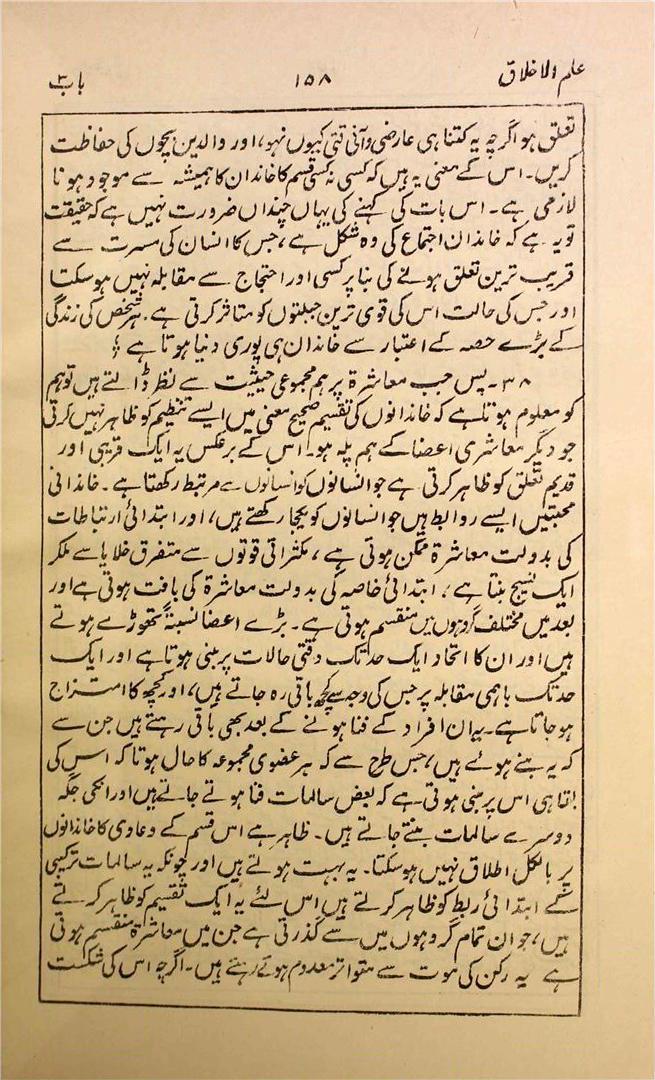 علم الاخلاق ۱۵۸ باب ۳
تعلق ہو اگرچہ یہ کتنا ہی عارضی و آنی کیوں نہو، اور والدین بچوں کی حفاظت
کریں۔ اس کے معنی یہ ہیں کہ کسی نہ کسی قسم کا خاندان کا ہمیشہ سے موجود ہونا
لازمی ہے۔ اس بات کی کہنے کی یہاں چنداں ضرورت نہیں ہے کہ حقیقت
تو یہ ہے کہ خاندان اجتماع کی وہ شکل ہے، جس کا انسان کی مسرت سے
قریب ترین تعلق ہونے کی بنا پر کسی اور احتجاج سے مقابلہ نہیں ہو سکتا
اور جس کی حالت اس کی قوی ترین جبلتوں کو متاثر کرتی ہے۔ ہر شخص کی زندگی
کے بڑے حصہ کے اعتبار سے خاندان ہی پوری دنیا ہوتا ہے
۳۸۔ پس جب معاشرۃ پر ہم مجموعی حیثیت سے نظر ڈالتے ہیں تو ہم
کو معلوم ہوتا ہے کہ خاندانوں کی تقسیم صحیح معنی میں ایسے تنظیم کو ظاہر نہیں کرتی
جو دیگر معاشری اعضا کے ہم پلہ ہو۔ اس کے برعکس یہ ایک قریبی اور
قدیم تعلق کو ظاہر کرتی ہے جو انسانوں کو انسانوں سے مرتبط رکھتا ہے۔ خاندانی
محبتیں ایسے روابط ہیں جو انسانوں کو یکجا رکھتے ہیں، اور ابتدائی ارتباطات
کی بدولت معاشرۃ ممکن ہوتی ہے، مکثراتی قوتوں سے متفرق خلایا سے ملکر
ایک نسیج بنتا ہے، ابتدائی خاصہ کی بدولت معاشرۃ کی بافت ہوتی ہے اور
بعد میں مختلف گروہوں میں منقسم ہوتی ہے۔ بڑے اعضا نسبۃً تھوڑے ہوتے
ہیں اور ان کا اتحاد ایک حد تک وقتی حالات پر مبنی ہوتا ہے اور ایک
حد تک باہمی مقابلہ پر جس کی وجہ سے کچھ باقی رہ جاتے ہیں، اور کچھ کا امتزاج
ہو جاتا ہے۔ یہ ان افراد کے فنا ہونے کے بعد بھی باقی رہتے ہیں جن سے
کہ یہ بنے ہوئے ہیں، جس طرح سے کہ ہر عضوی مجموعہ کا حال ہوتا کہ اس کی
بقا ہی اس پر مبنی ہوتی ہے کہ بعض سالمات فنا ہوتے جاتے ہیں اور انکی جگہ
دوسرے سالمات بنتے جاتے ہیں۔ ظاہر ہے اس قسم کے دعاوی کا خاندانوں
پر بالکل اطلاق نہیں ہو سکتا۔ یہ بہت ہوتے ہیں اور چونکہ یہ سالمات ترکیبی
کے ابتدائی ربط کو ظاہر کرتے ہیں اس لئے یہ ایک تقسیم کو ظاہر کرتے
ہیں، جو ان تمام گروہوں میں سے گذرتی ہے جن میں معاشرۃ منقسم ہوتی
ہے یہ رکن کی موت سے متواتر معدوم ہوتے رہتے ہیں۔ اگرچہ اس کی شکست